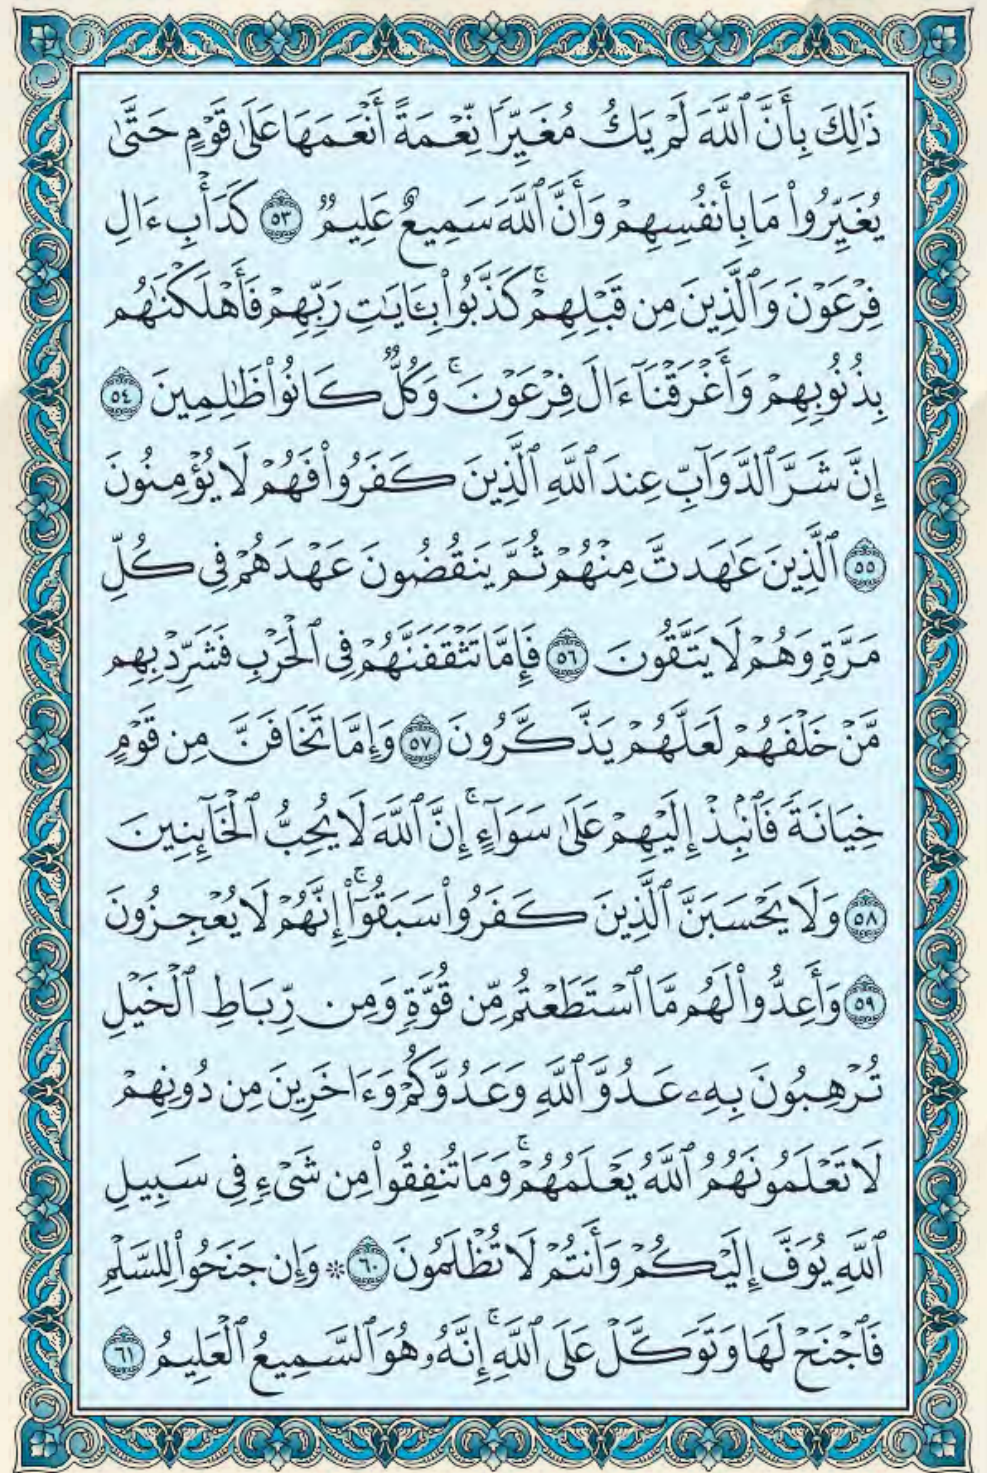 ذَٰلِكَ بِأَنَّ ٱللَّهَ لَمۡ يَكُ مُغَيِّرٗا نِّعۡمَةً أَنۡعَمَهَا عَلَىٰ قَوۡمٍ حَتَّىٰ
يُغَيِّرُواْ مَا بِأَنفُسِهِمۡ وَأَنَّ ٱللَّهَ سَمِيعٌ عَلِيمٞ ٥٣ كَدَأۡبِ ءَالِ
فِرۡعَوۡنَ وَٱلَّذِينَ مِن قَبۡلِهِمۡۚ كَذَّبُواْ بِـَٔايَٰتِ رَبِّهِمۡ فَأَهۡلَكۡنَٰهُم
بِذُنُوبِهِمۡ وَأَغۡرَقۡنَآ ءَالَ فِرۡعَوۡنَۚ وَكُلّٞ كَانُواْ ظَٰلِمِينَ ٥٤
إِنَّ شَرَّ ٱلدَّوَآبِّ عِندَ ٱللَّهِ ٱلَّذِينَ كَفَرُواْ فَهُمۡ لَا يُؤۡمِنُونَ
٥٥ ٱلَّذِينَ عَٰهَدتَّ مِنۡهُمۡ ثُمَّ يَنقُضُونَ عَهۡدَهُمۡ فِي كُلِّ
مَرَّةٖ وَهُمۡ لَا يَتَّقُونَ ٥٦ فَإِمَّا تَثۡقَفَنَّهُمۡ فِي ٱلۡحَرۡبِ فَشَرِّدۡ بِهِم
مَّنۡ خَلۡفَهُمۡ لَعَلَّهُمۡ يَذَّكَّرُونَ ٥٧ وَإِمَّا تَخَافَنَّ مِن قَوۡمٍ
خِيَانَةٗ فَٱنۢبِذۡ إِلَيۡهِمۡ عَلَىٰ سَوَآءٍۚ إِنَّ ٱللَّهَ لَا يُحِبُّ ٱلۡخَآئِنِينَ
٥٨ وَلَا يَحۡسَبَنَّ ٱلَّذِينَ كَفَرُواْ سَبَقُوٓاْۚ إِنَّهُمۡ لَا يُعۡجِزُونَ
٥٩ وَأَعِدُّواْ لَهُم مَّا ٱسۡتَطَعۡتُم مِّن قُوَّةٖ وَمِن رِّبَاطِ ٱلۡخَيۡلِ
تُرۡهِبُونَ بِهِۦ عَدُوَّ ٱللَّهِ وَعَدُوَّكُمۡ وَءَاخَرِينَ مِن دُونِهِمۡ
لَا تَعۡلَمُونَهُمُ ٱللَّهُ يَعۡلَمُهُمۡۚ وَمَا تُنفِقُواْ مِن شَيۡءٖ فِي سَبِيلِ
ٱللَّهِ يُوَفَّ إِلَيۡكُمۡ وَأَنتُمۡ لَا تُظۡلَمُونَ ٦٠ ۞ وَإِن جَنَحُواْ لِلسَّلۡمِ
فَٱجۡنَحۡ لَهَا وَتَوَكَّلۡ عَلَى ٱللَّهِۚ إِنَّهُۥ هُوَ ٱلسَّمِيعُ ٱلۡعَلِيمُ ٦١